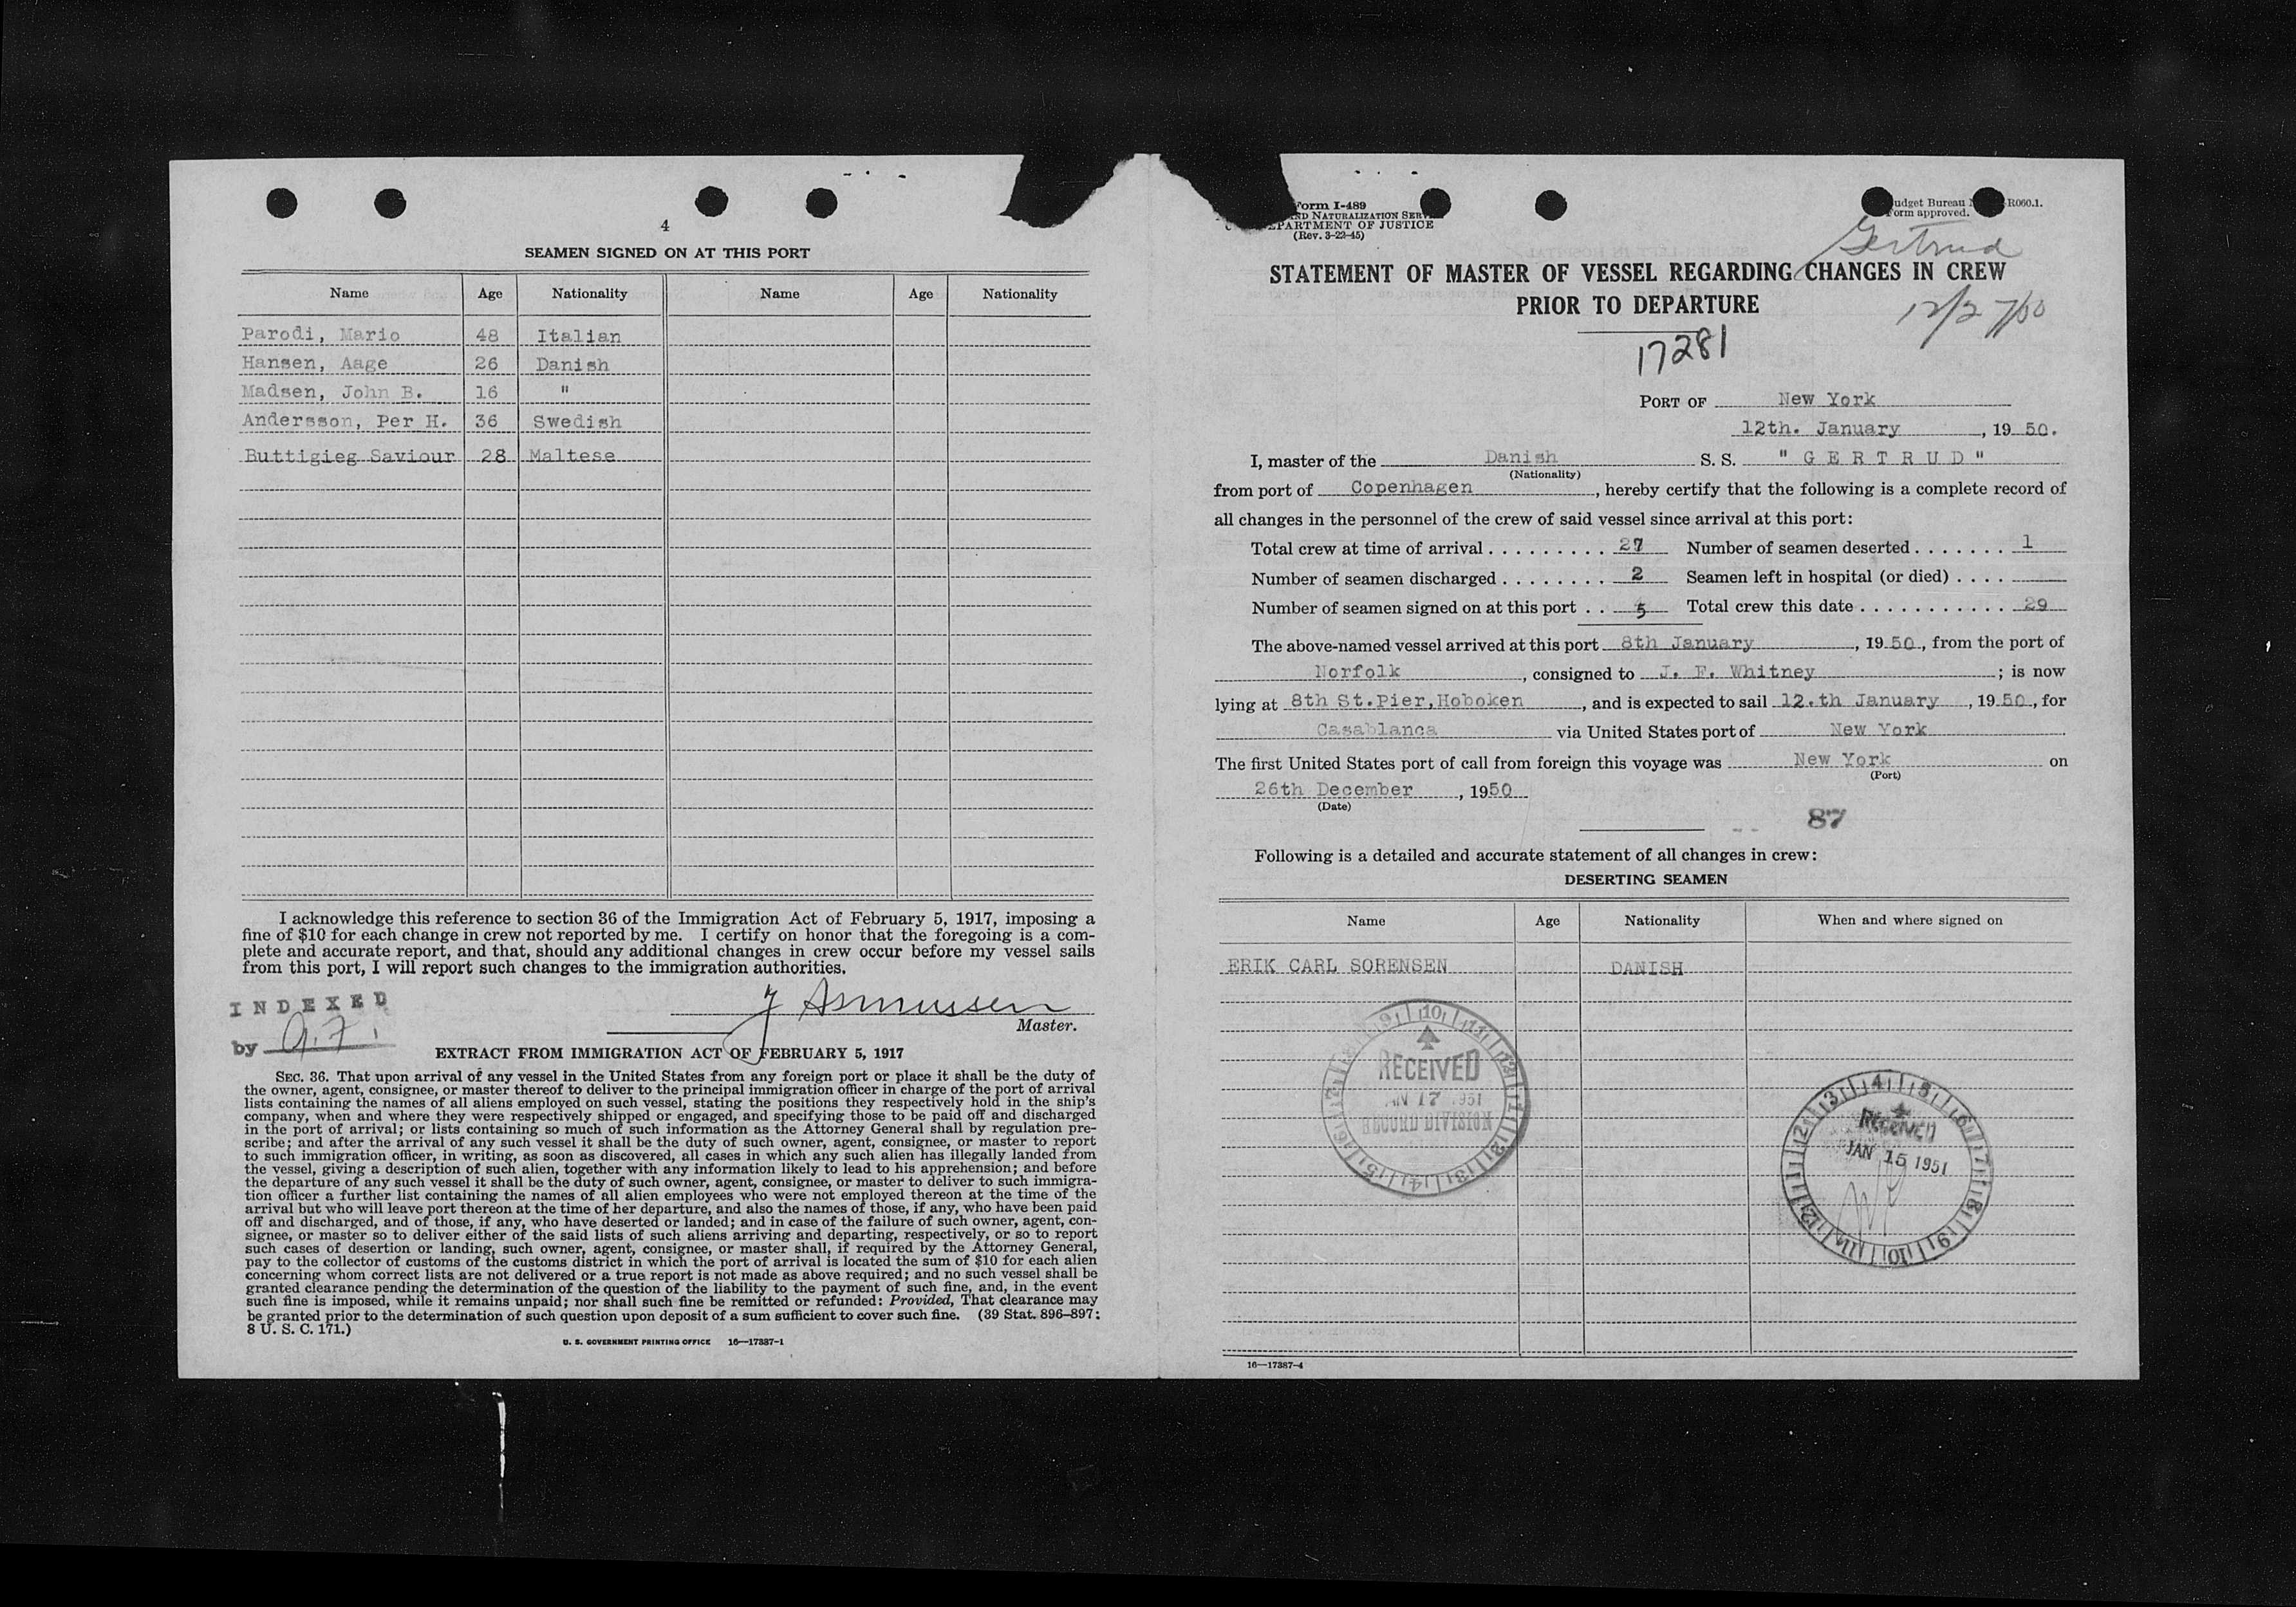 4
SEAMEN SIGNED ON AT THIS PORT
Name Age Nationality Name Age Nationality
Parodi, Mario 48 Italian
Hansen, Aage 26 Danish
Madsen, John B. 16 "
Andersson, Per H. 36 Swedish
Buttigieg Saviour 28 Maltese
I acknowledge this reference to section 36 of the Immigration Act of February 5, 1917, imposing a
fine of $10 for each change in crew not reported by me. I certify on honor that the foregoing is a com-
plete and accurate report, and that, should any additional changes in crew occur before my vessel sails
from this port, I will report such changes to the immigration authorities.
INDEXED
by a.f.
J Asmussen
Master.
EXTRACT FROM IMMIGRATION ACT OF FEBRUARY 5, 1917
SEC. 36. That upon arrival of any vessel in the United States from any foreign port or place it shall be the duty of
the owner, agent, consignee, or master thereof to deliver to the principal immigration officer in charge of the port of arrival
lists containing the names of all aliens employed on such vessel, stating the positions they respectively hold in the ship's
company, when and where they were respectively shipped or engaged, and specifying those to be paid off and discharged
in the port of arrival; or lists containing so much of such information as the Attorney General shall by regulation pre-
scribe; and after the arrival of any such vessel it shall be the duty of such owner, agent, consignee, or master to report
to such immigration officer, in writing, as soon as discovered, all cases in which any such alien has illegally landed from
the vessel, giving a description of such alien, together with any information likely to lead to his apprehension; and before
the departure of any such vessel it shall be the duty of such owner, agent, consignee, or master to deliver to such immigra-
tion officer a further list containing the names of all alien employees who were not employed thereon at the time of the
arrival but who will leave port thereon at the time of her departure, and also the names of those, if any, who have been paid
off and discharged, and of those, if any, who have deserted or landed; and in case of the failure of such owner, agent, con-
signee, or master so to deliver either of the said lists of such aliens arriving and departing, respectively, or so to report
such cases of desertion or landing, such owner, agent, consignee, or master shall, if required by the Attorney General,
pay to the collector of customs of the customs district in which the port of arrival is located the sum of $10 for each alien
concerning whom correct lists are not delivered or a true report is not made as above required; and no such vessel shall be
granted clearance pending the determination of the question of the liability to the payment of such fine, and, in the event
such fine is imposed, while it remains unpaid; nor shall such fine be remitted or refunded: Provided, That clearance may
be granted prior to the determination of such question upon deposit of a sum sufficient to cover such fine. (39 Stat. 896-897;
8 U. S. C. 171.)
U. S. GOVERNMENT PRINTING OFFICE 16—17387-1
Form I-489
AND NATURALIZATION SERV
DEPARTMENT OF JUSTICE
(Rev. 3-22-45)
udget Bureau R060.1.
Form approved.
Gertrud
STATEMENT OF MASTER OF VESSEL REGARDING CHANGES IN CREW
PRIOR TO DEPARTURE
12/27/50
17281
PORT OF New York
12th. January, 1950.
I, master of the Danish S. S. "GERTRUD"
(Nationality)
from port of Copenhagen, hereby certify that the following is a complete record of
all changes in the personnel of the crew of said vessel since arrival at this port:
Total crew at time of arrival . . . . . . . . . 27 Number of seamen deserted . . . . . . . 1
Number of seamen discharged . . . . . . . . 2 Seamen left in hospital (or died) . . . .
Number of seamen signed on at this port . . 5 Total crew this date . . . . . . . . . . . 29
The above-named vessel arrived at this port 8th January, 1950, from the port of
Norfolk, consigned to J. F. Whitney; is now
lying at 8th St.Pier,Hoboken, and is expected to sail 12.th January, 1950, for
Casablanca via United States port of New York
The first United States port of call from foreign this voyage was New York on
(Port)
26th December, 1950
(Date)
87
Following is a detailed and accurate statement of all changes in crew:
DESERTING SEAMEN
Name Age Nationality When and where signed on
ERIK CARL SORENSEN DANISH
RECEIVED
JAN 17 1951
RECORD DIVISION
RECEIVED
JAN 15 1951
16—17387-4